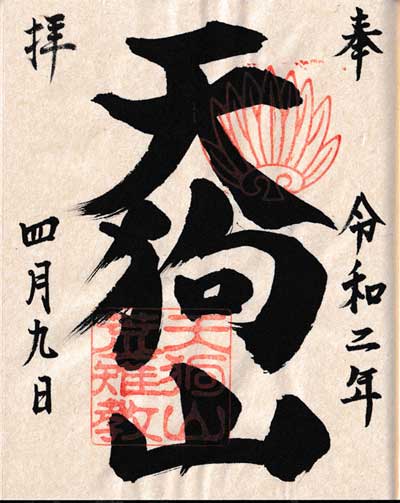 奉
令和二年
天狗山
四月九日
拝
天狗山